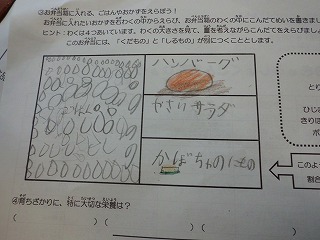 ③お弁当箱に入れる、ごはんやおかずをえらぼう！
お弁当に入れたいおかずを右わくの中からえらび、お弁当箱のわくの中にこんだてめいを書きま
ヒント：わくは4つついています。わくの大きさを見て、量を考えながらこんだてをえらびましょ
このお弁当には、「くだもの」と「しるもの」が別につくこととします。
ハンバーグ
やさいサラダ
ごはん
かぼちゃのにもの
とり
ひじ
きり
ぼ
このよう
割合
④育ちざかりに、特に大切な栄養は？
(　　　)(　　　)(　　　)(